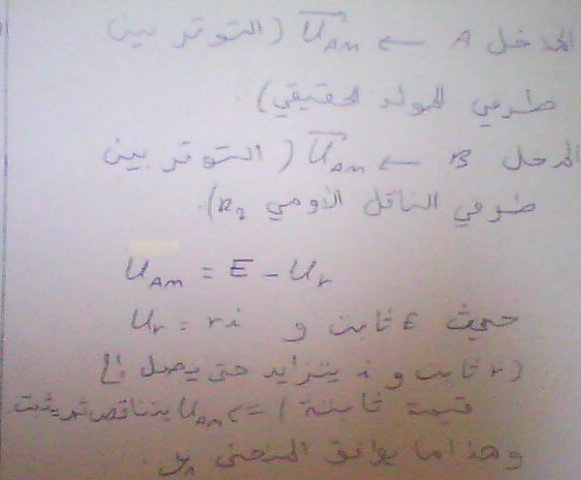 المدخل A ← U_AM (التوتر بين
طرفي المولد الحقيقي).
المدخل B ← U_AM (التوتر بين
طرفي الناقل الأومي R₂).
U_AM = E - U_r
حيث E ثابت و U_r = ri
(r ثابت و i يتزايد حتى يصل إلى
قيمة ثابتة) ⇐ U_AM يتناقص ثم يثبت
وهذا ما يوافق المنحنى y₁.